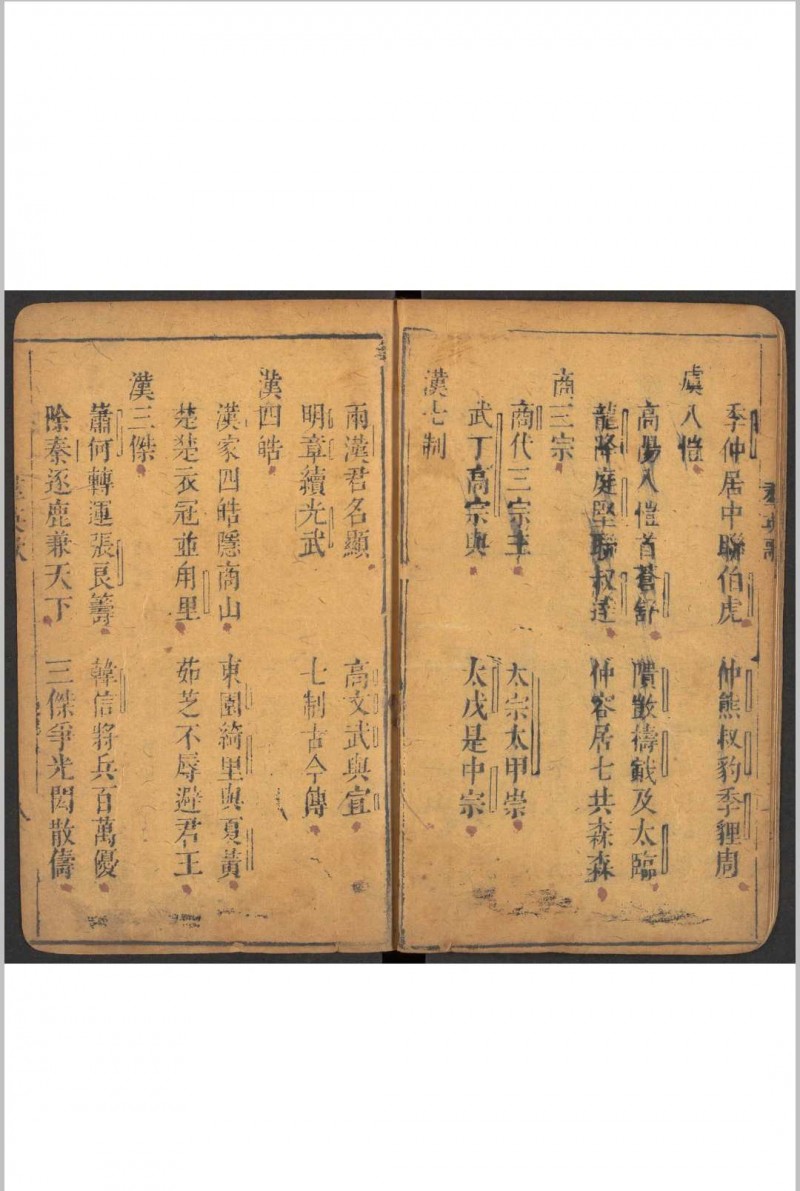 季仲居中聯伯虎 仲熊叔豹季貍周
虞八愷
高陽八愷首蒼舒 隤敳檮戭及太臨
龍降庭堅聯叔達 仲容居七共森森
商三宗
商代三宗主 太宗太甲崇
武丁高宗與 太戊是中宗
漢七制
兩漢君名顯 高文武與宣
明章續光武 七制古今傳
漢四皓
漢家四皓隱商山 東園綺里與夏黃
楚楚衣冠並甪里 茹芝不辱避君王
漢三傑
蕭何轉運張良籌 韓信將兵百萬優
除秦逐鹿兼天下 三傑爭光閎散儔